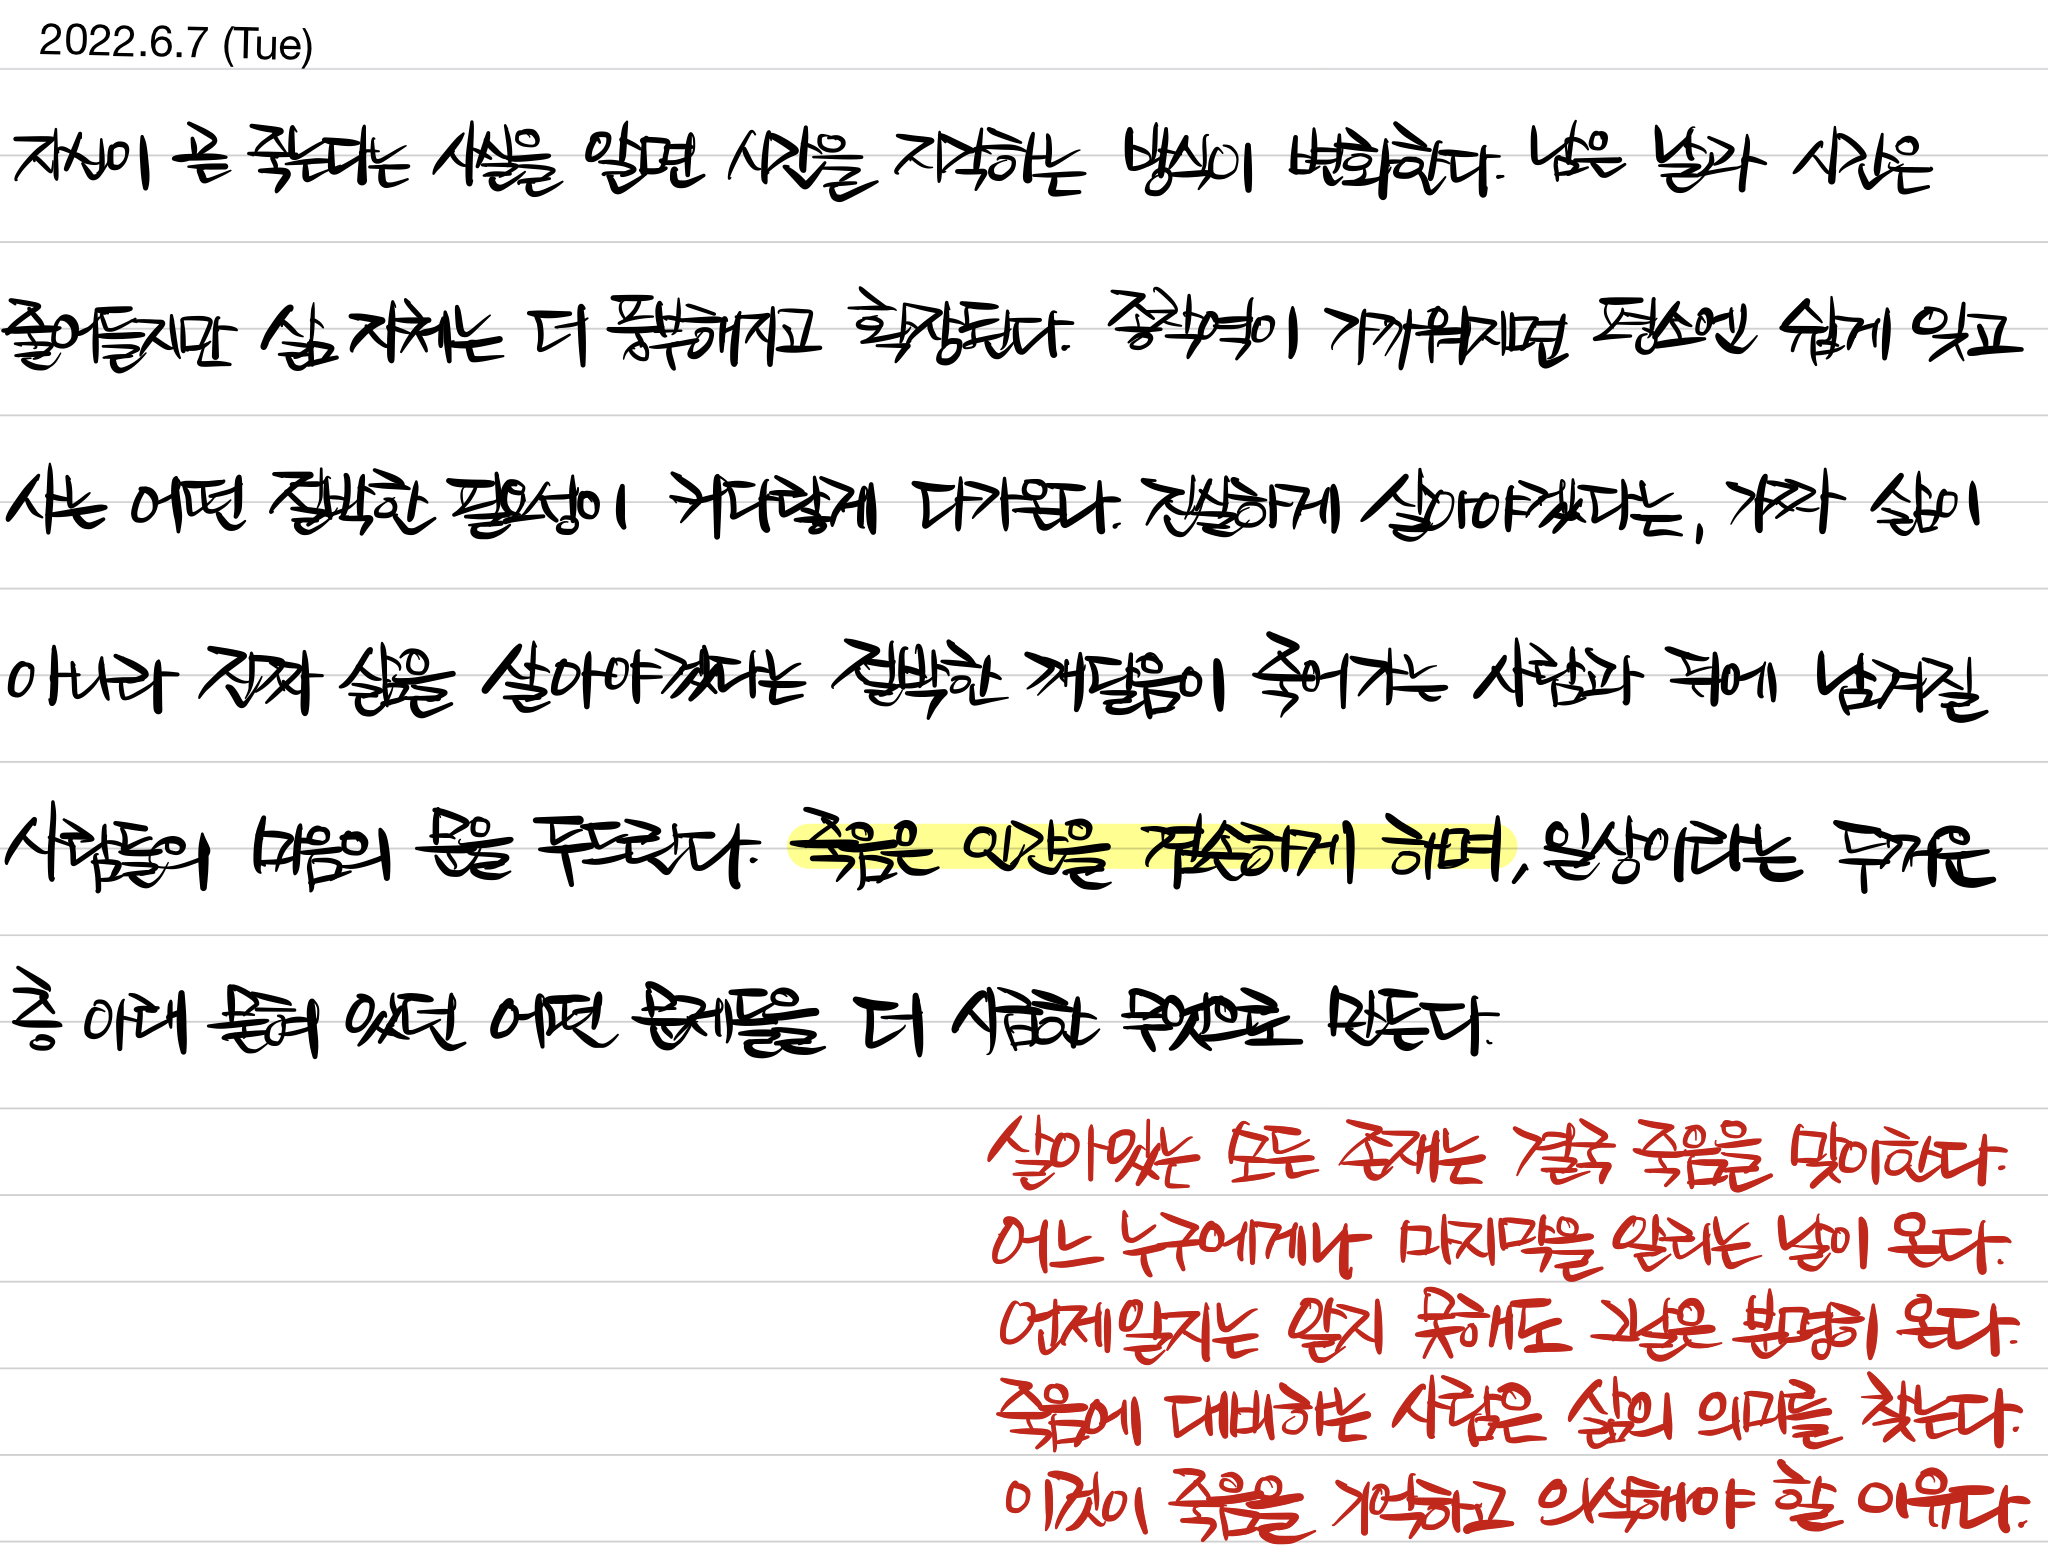 2022.6.7 (Tue)
자신이 곧 죽는다는 사실을 알면 시간을 지각하는 방식이 변화한다. 남은 날과 시간은
줄어들지만 삶 자체는 더 풍부해지고 확장된다. 종착역이 가까워지면 평소엔 쉽게 잊고
사는 어떤 절박한 필요성이 커다랗게 다가온다. 진실하게 살아야겠다는, 가짜 삶이
아니라 진짜 삶을 살아야겠다는 절박한 깨달음이 죽어가는 사람과 뒤에 남겨질
사람들의 마음의 문을 두드린다. 죽음은 인간을 겸손하게 하며, 일상이다는 두꺼운
층 아래 묻혀 있던 어떤 문제들을 더 시급한 무엇으로 만든다.
살아있는 모든 존재는 결국 죽음을 맞이한다.
어느 누구에게나 마지막을 알리는 날이 온다.
언제일지는 알지 못해도 그날은 분명히 온다.
죽음에 대비하는 사람은 삶의 의미를 찾는다.
이것이 죽음을 기억하고 의식해야 할 이유다.